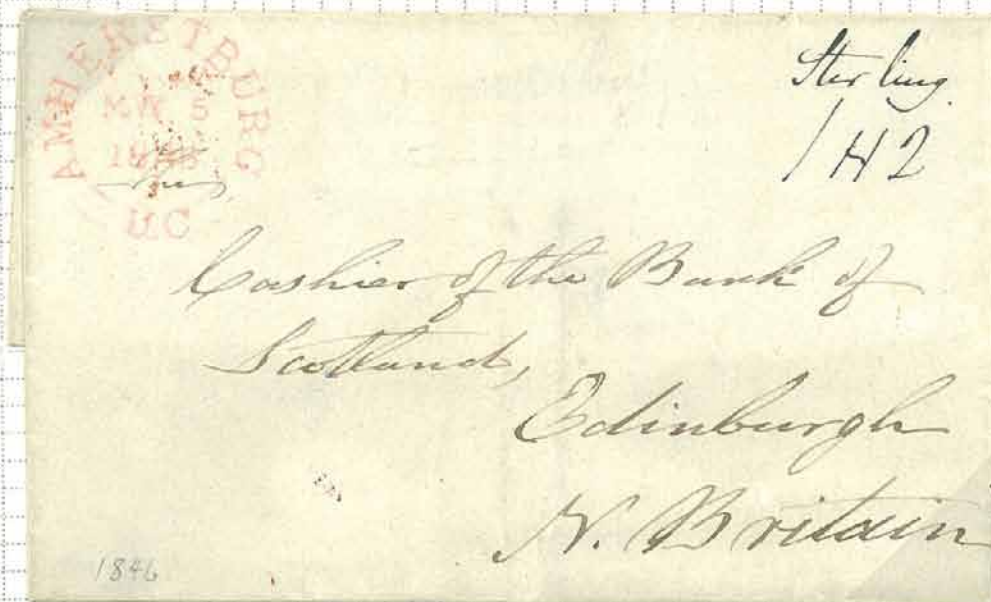 AMHERSTBURG
5
U.C
Sterling
1/42
Cashier of the Bank of
Scotland,
Edinburgh
N. Britain
1846